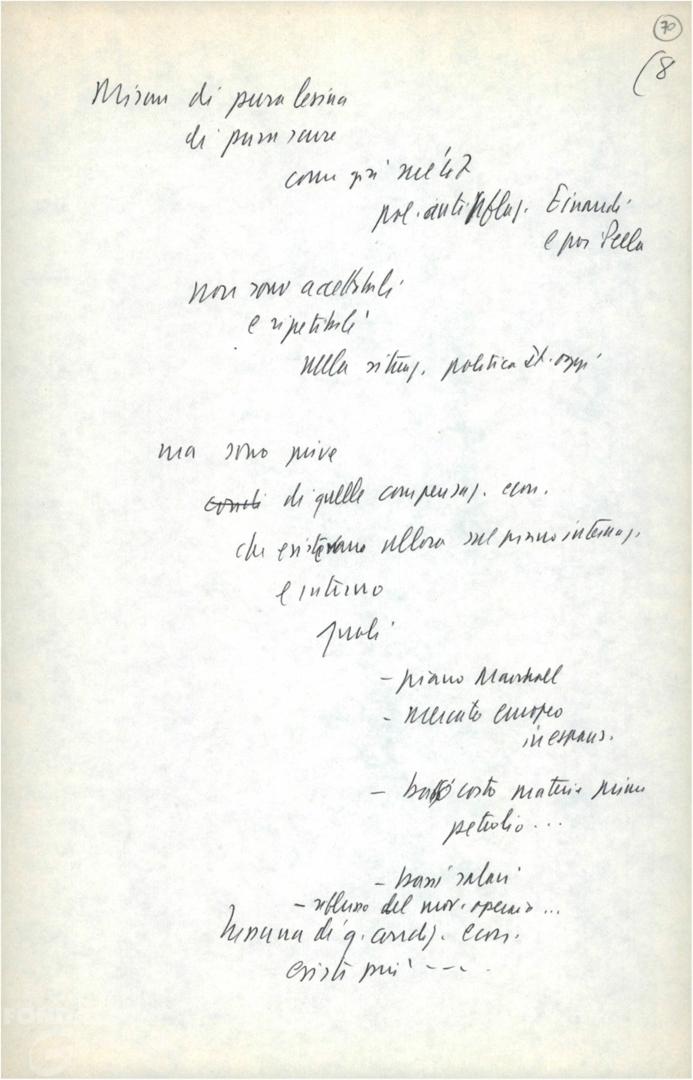 70
(8
Misure di pura lesina
di pura scure
come già nel '47
pol. antinflaz. Einaudi
e poi Pella
non sono accettabili
e ripetibili
nella situaz. politica di oggi
ma sono prive
di quelle compensaz. econ.
che esistevano allora sul piano internaz.
e interno
quali
- piano Marshall
- mercato europeo
in espans.
- basso costo materie prime
petrolio...
- bassi salari
- riflusso del mov. operaio...
Nessuna di q. condiz. econ.
esiste più ---
FOND